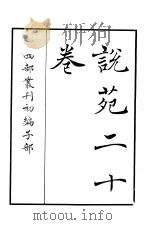 說苑二十
卷
四部叢刊初編子部
mtoou.info